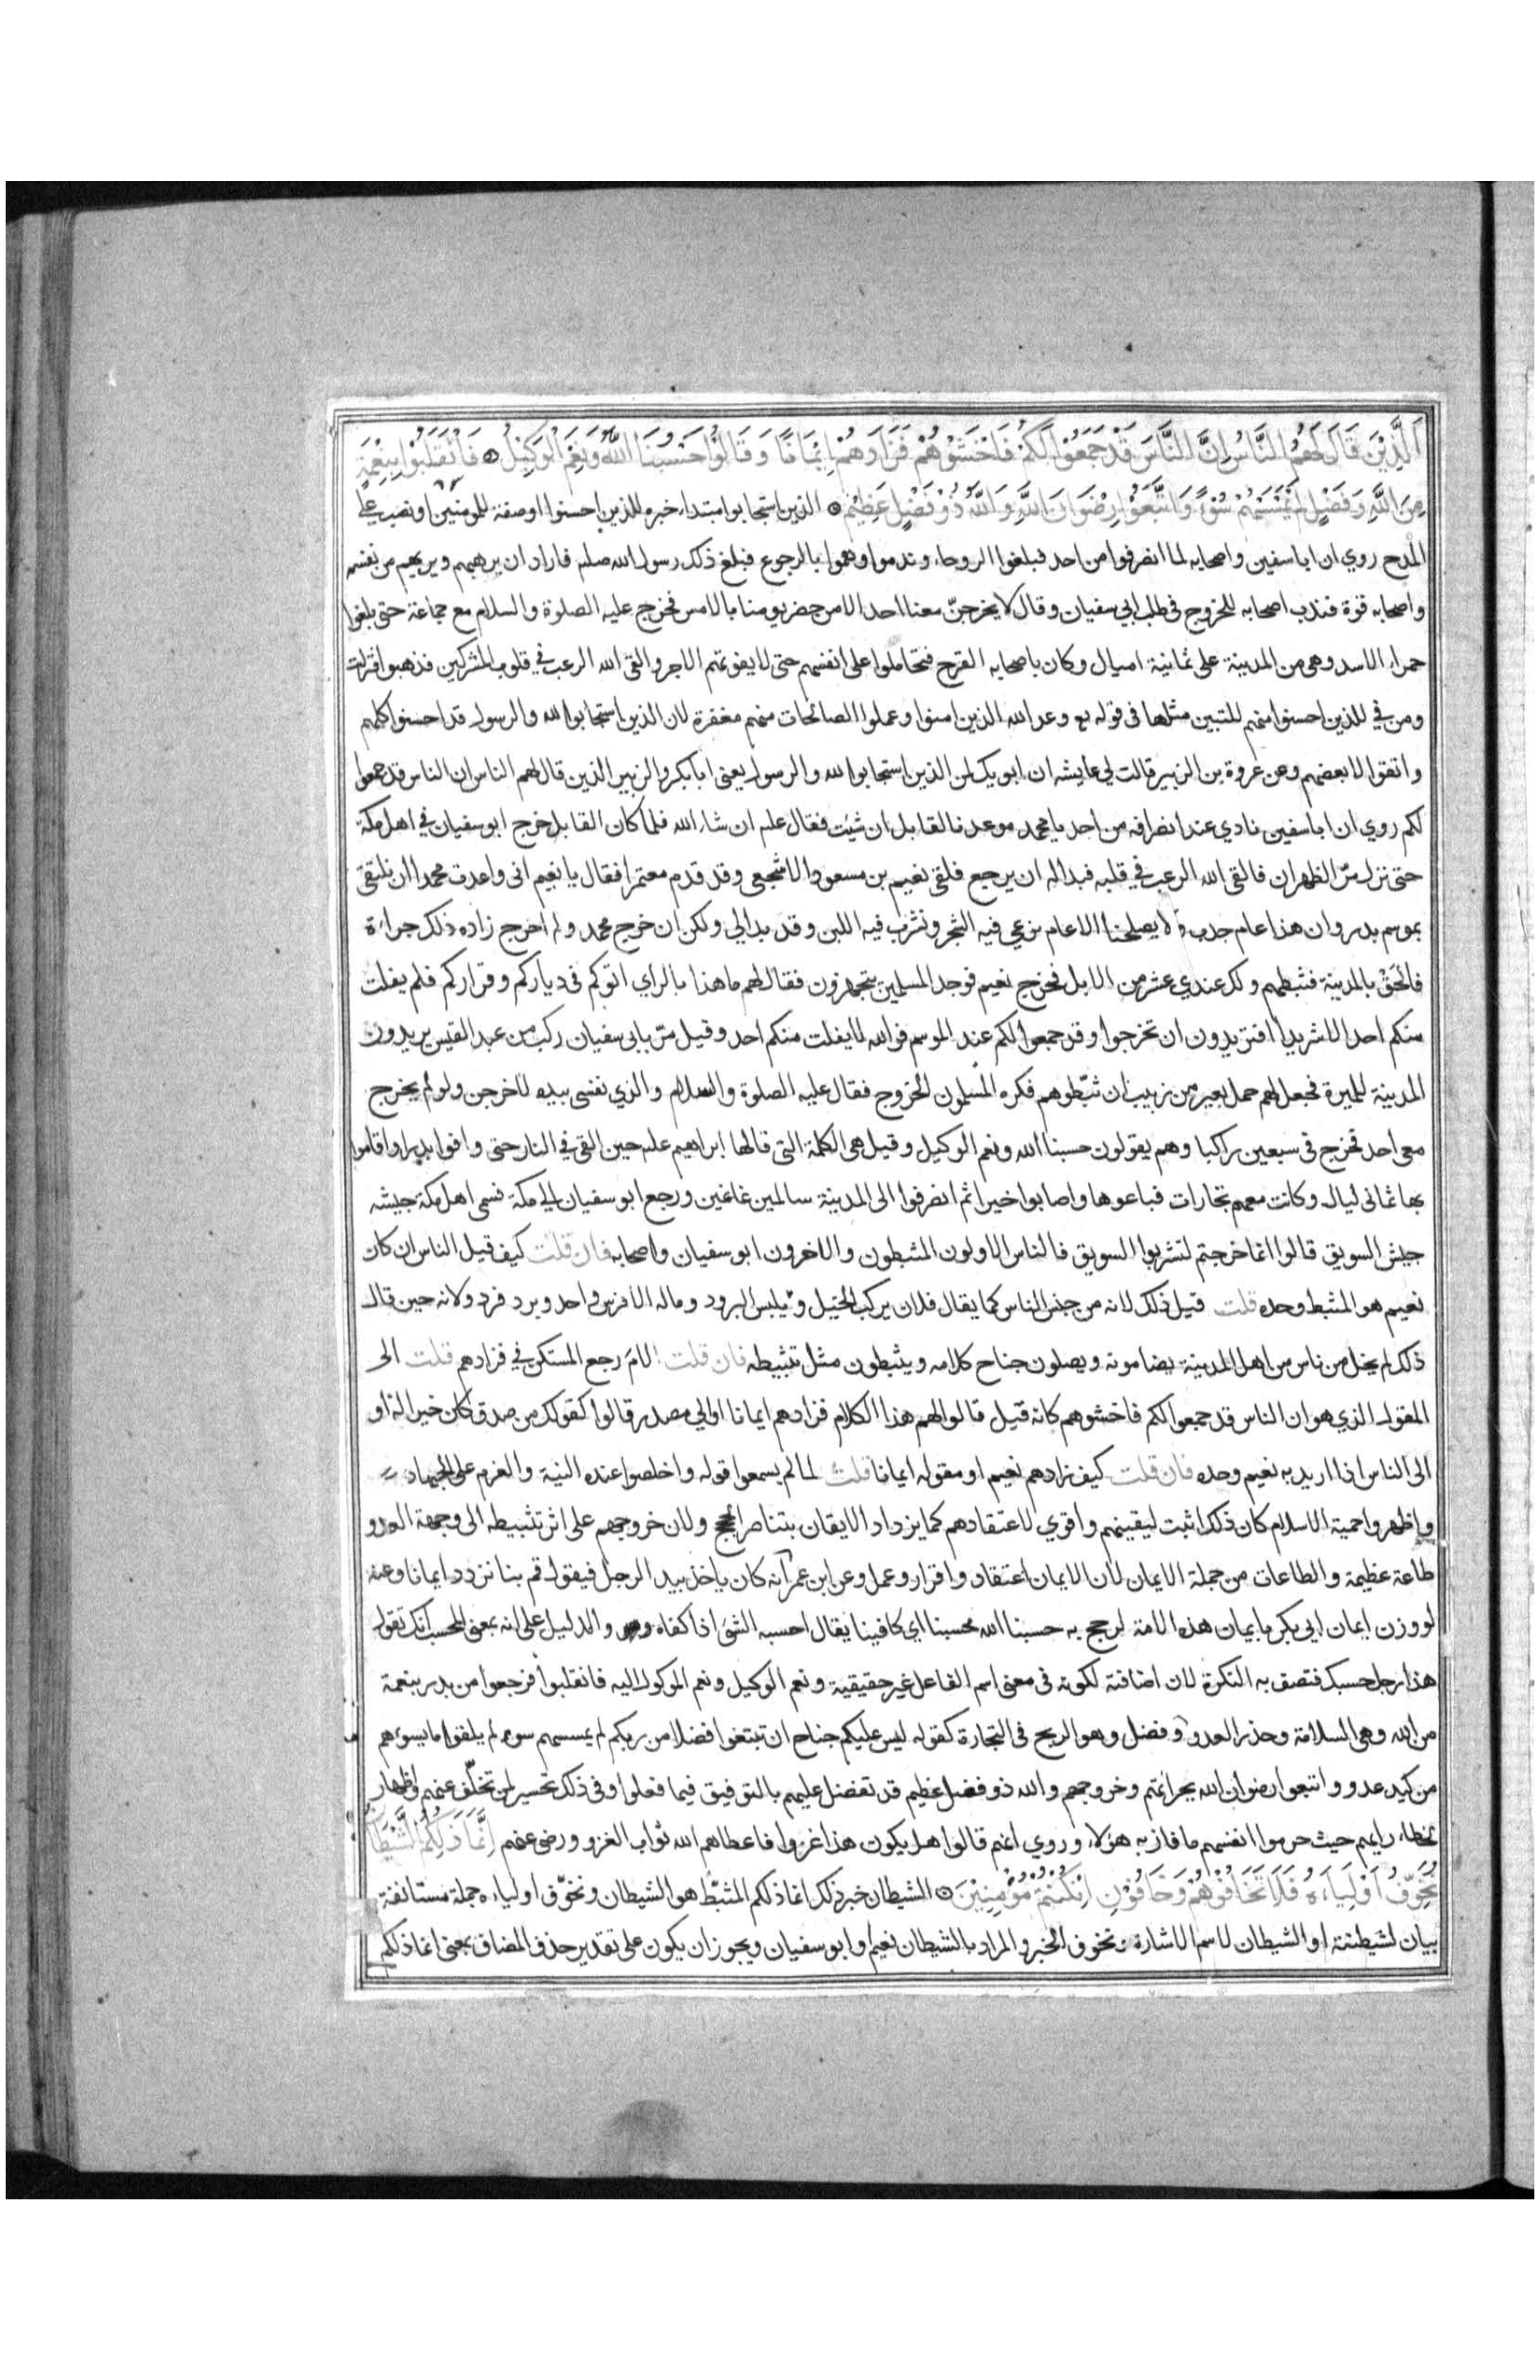 اَلَّذِيْنَ قَالَ لَهُمُ النَّاسُ اِنَّ النَّاسَ قَدْ جَمَعُوْا لَكُمْ فَاخْشَوْهُمْ فَزَادَهُمْ اِيْمَانًا وَقَالُوْا حَسْبُنَا اللّٰهُ وَنِعْمَ الْوَكِيْلُ ۞ فَانْقَلَبُوْا بِنِعْمَةٍ
مِنَ اللّٰهِ وَفَضْلٍ لَمْ يَمْسَسْهُمْ سُوْءٌ وَاتَّبَعُوْا رِضْوَانَ اللّٰهِ وَاللّٰهُ ذُوْ فَضْلٍ عَظِيْمٍ ۞ الذين استجابوا مبتداء خبره للذين احسنوا او صفة للمومنين او نصب على
المدح روي ان ابا سفين واصحابه لما انصرفوا من احد فبلغوا الروحاء وندموا وهموا بالرجوع فبلغ ذلك رسول الله صلم فاراد ان يرهبهم ويريهم من نفسه
واصحابه قوة فندب اصحابه للخروج في طلب ابي سفيان وقال لا يخرجنّ معنا احد الا من حضر يومنا بالامس فخرج عليه الصلوة والسلام مع جماعة حتى بلغوا
حمراء الاسد وهي من المدينة على ثمانية اميال وكان باصحابه القرح فتحاملوا على انفسهم حتى لا يفوتهم الاجر والقى الله الرعب في قلوب المشركين فذهبوا فنزلت
ومن في للذين احسنوا منهم للتبين مثلها في قوله تع وعد الله الذين امنوا وعملوا الصالحات منهم مغفرة لان الذين استجابوا لله والرسول قد احسنوا كلهم
واتقوا لا بعضهم وعن عروة بن الزبير قالت لي عايشه ان ابويك لمن الذين استجابوا لله والرسول يعنى ابا بكر والزبير الذين قال لهم الناس ان الناس قد جمعوا
لكم روي ان ابا سفين نادي عند انصرافه من احد يا محمد موعدنا لقابل ان شئت فقال علم ان شاء الله فلما كان القابل خرج ابو سفيان في اهل مكة
حتى نزل مرّ الظهران فالقى الله الرعب في قلبه فبدا له ان يرجع فلقى نعيم بن مسعود الاشجعي وقد قدم معتمرا فقال يا نعيم انى واعدت محمدا ان نلتقى
بموسم بدر وان هذا عام جدب ولا يصلحنا الا عام نرعي فيه الشجر ونشرب فيه اللبن وقد بدا لي ولكن ان خرج محمد ولم اخرج زاده ذلك جراءة
فالحق بالمدينة فثبطهم ولك عندي عشر من الابل فخرج نعيم فوجد المسلمين يتجهزون فقال لهم ما هذا بالراي اتوكم في دياركم وقراركم فلم يفلت
منكم احد الا شريدا افتريدون ان تخرجوا وقد جمعوا لكم عند الموسم فوالله لا يفلت منكم احد وقيل مرّ بابى سفيان ركب من عبد القيس يريدون
المدينة للميرة فجعل لهم حمل بعير من زبيب ان ثبّطوهم فكره المسلمون الخروج فقال عليه الصلوة والسلام والذي نفسى بيده لاخرجن ولو لم يخرج
معى احد فخرج في سبعين راكبا وهم يقولون حسبنا الله ونعم الوكيل وقيل هى الكلمة التى قالها ابراهيم علم حين القى في النار حتى وافوا بدرا واقاموا
بها ثمانى ليال وكانت معهم تجارات فباعوها واصابوا خيرا ثم انصرفوا الى المدينة سالمين غانمين ورجع ابو سفيان الى مكة فسمى اهل مكة جيشه
جيش السويق قالوا انما خرجتم لتشربوا السويق فالناس الاولون المثبطون والاخرون ابو سفيان واصحابه فان قلت كيف قيل الناس ان كان
نعيم هو المثبط وحده قلت قيل ذلك لانه من جنس الناس كما يقال فلان يركب الخيل ويلبس البرود وماله الا فرس واحد وبرد فرد ولانه حين قال
ذلك لم يخل من ناس من اهل المدينة يضامونه ويصلون جناح كلامه ويثبطون مثل تثبيطه فان قلت الام رجع المستكن في فزادهم قلت الى
المقول الذي هو ان الناس قد جمعوا لكم فاخشوهم كانه قيل قالوا لهم هذا الكلام فزادهم ايمانا او الى مصدر قالوا كقولك من صدق كان خيرا له او
الى الناس اذا اريد به نعيم وحده فان قلت كيف زادهم نعيم او مقوله ايمانا قلت لما لم يسمعوا قوله واخلصوا عنده النية والعزم على الجهاد
واظهروا حمية الاسلام كان ذلك اثبت ليقينهم واقوي لاعتقادهم كما يزداد الايقان بتناصر الحجج ولان خروجهم على اثر تثبيطه الى وجهة العدو
طاعة عظيمة والطاعات من جملة الايمان لان الايمان اعتقاد واقرار وعمل وعن ابن عمر انه كان ياخذ بيد الرجل فيقول قم بنا نزدد ايمانا وعنه
لو وزن ايمان ابى بكر بايمان هذه الامة لرجح به حسبنا الله محسبنا اي كافينا يقال احسبه الشئ اذا كفاه والدليل على انه بمعنى المحسب انك تقول
هذا رجل حسبك فتصف به النكرة لان اضافته لكونه في معنى اسم الفاعل غير حقيقية ونعم الوكيل ونعم الموكول اليه فانقلبوا فرجعوا من بدر بنعمة
من الله وهى السلامة وحذر العدو وفضل وهو الربح في التجارة كقوله ليس عليكم جناح ان تبتغوا فضلا من ربكم لم يمسسهم سوء لم يلقوا ما يسوءهم
من كيد عدو واتبعوا رضوان الله بجراتهم وخروجهم والله ذو فضل عظيم قد تفضل عليهم بالتوفيق فيما فعلوا وفى ذلك تحسير لمن تخلّف عنهم واظهار
لخطاء رايهم حيث حرموا انفسهم ما فاز به هؤلاء وروي انهم قالوا هل يكون هذا غزوا فاعطاهم الله ثواب الغزو ورضى عنهم اِنَّمَا ذٰلِكُمُ الشَّيْطَانُ
يُخَوِّفُ اَوْلِيَاءَهُ فَلَا تَخَافُوْهُمْ وَخَافُوْنِ اِنْ كُنْتُمْ مُؤْمِنِيْنَ ۞ الشيطان خبر ذلكم انما ذلكم المثبّط هو الشيطان ويخوّف اولياءه جملة مستانفة
بيان لشيطنته او الشيطان لاسم الاشارة ويخوف الخبر والمراد بالشيطان نعيم او ابو سفيان ويجوز ان يكون على تقدير حذف المضاف بمعنى انما ذلكم